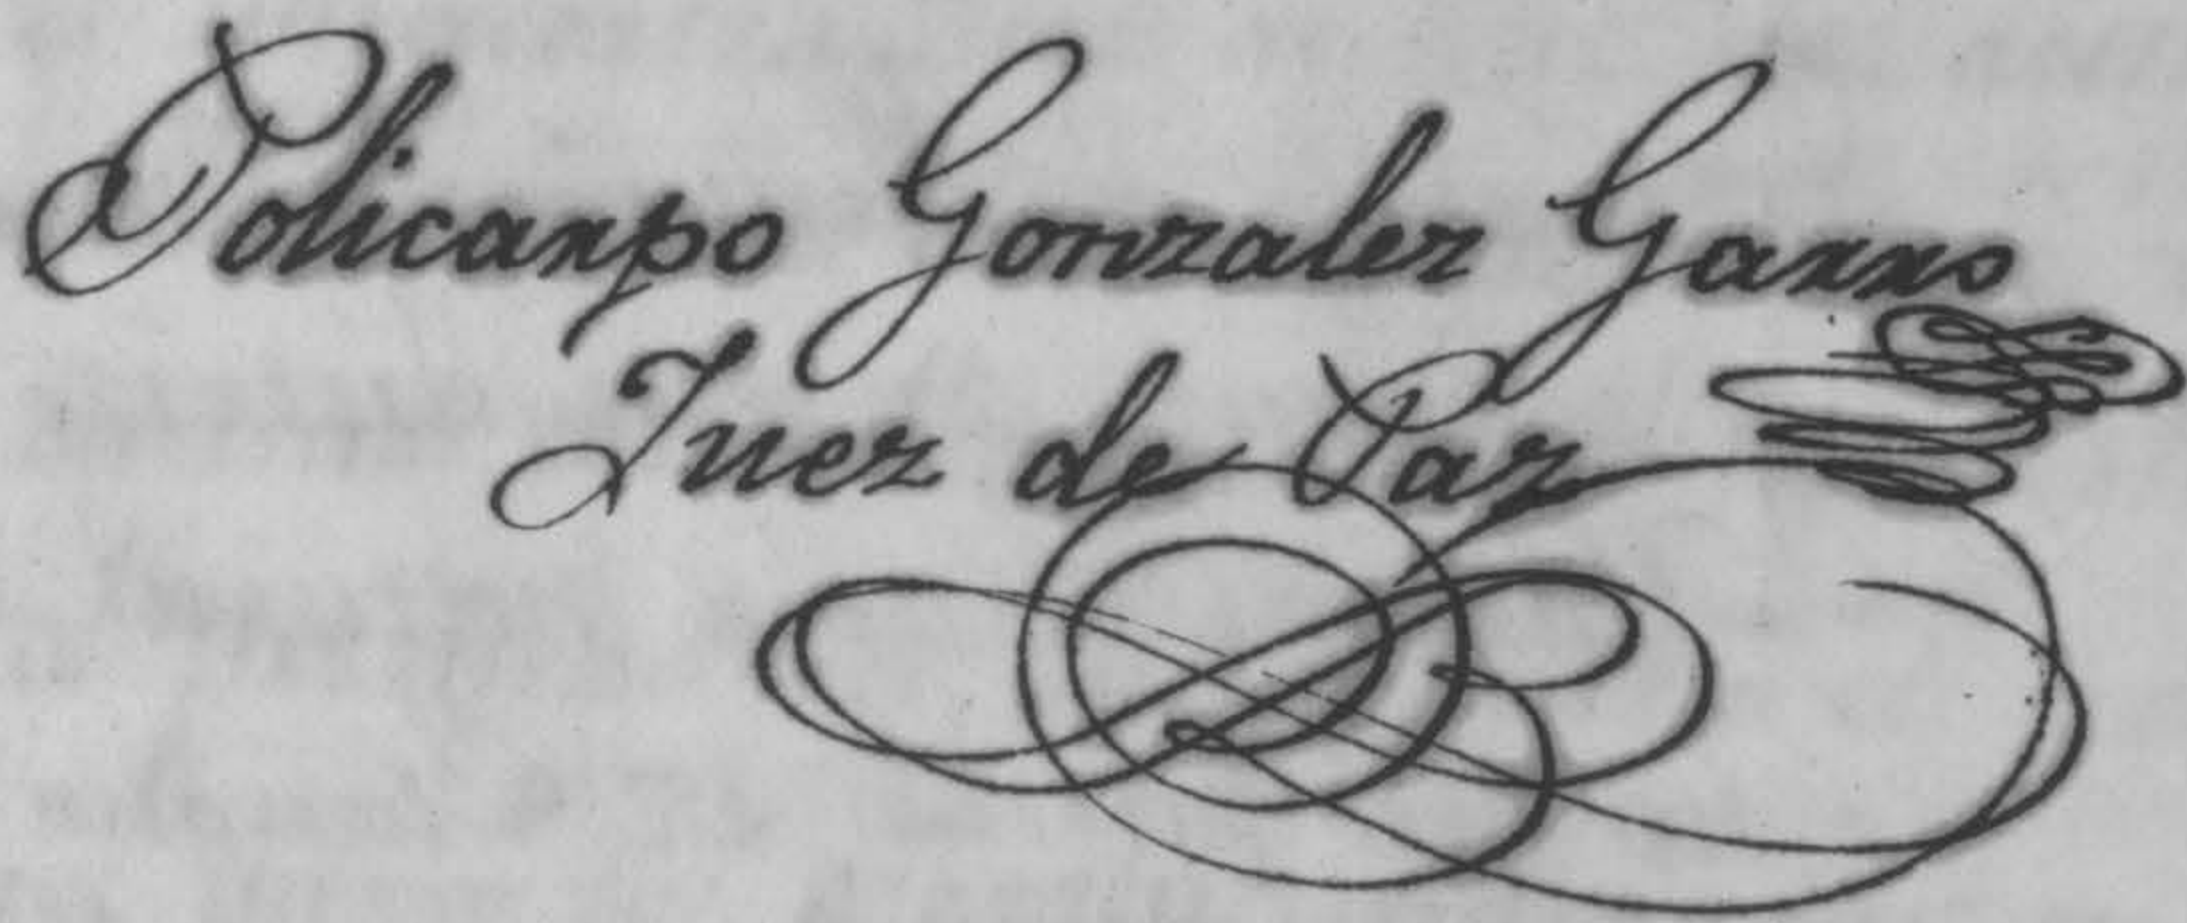 Policarpo Gonzalez Garro
Juez de Paz